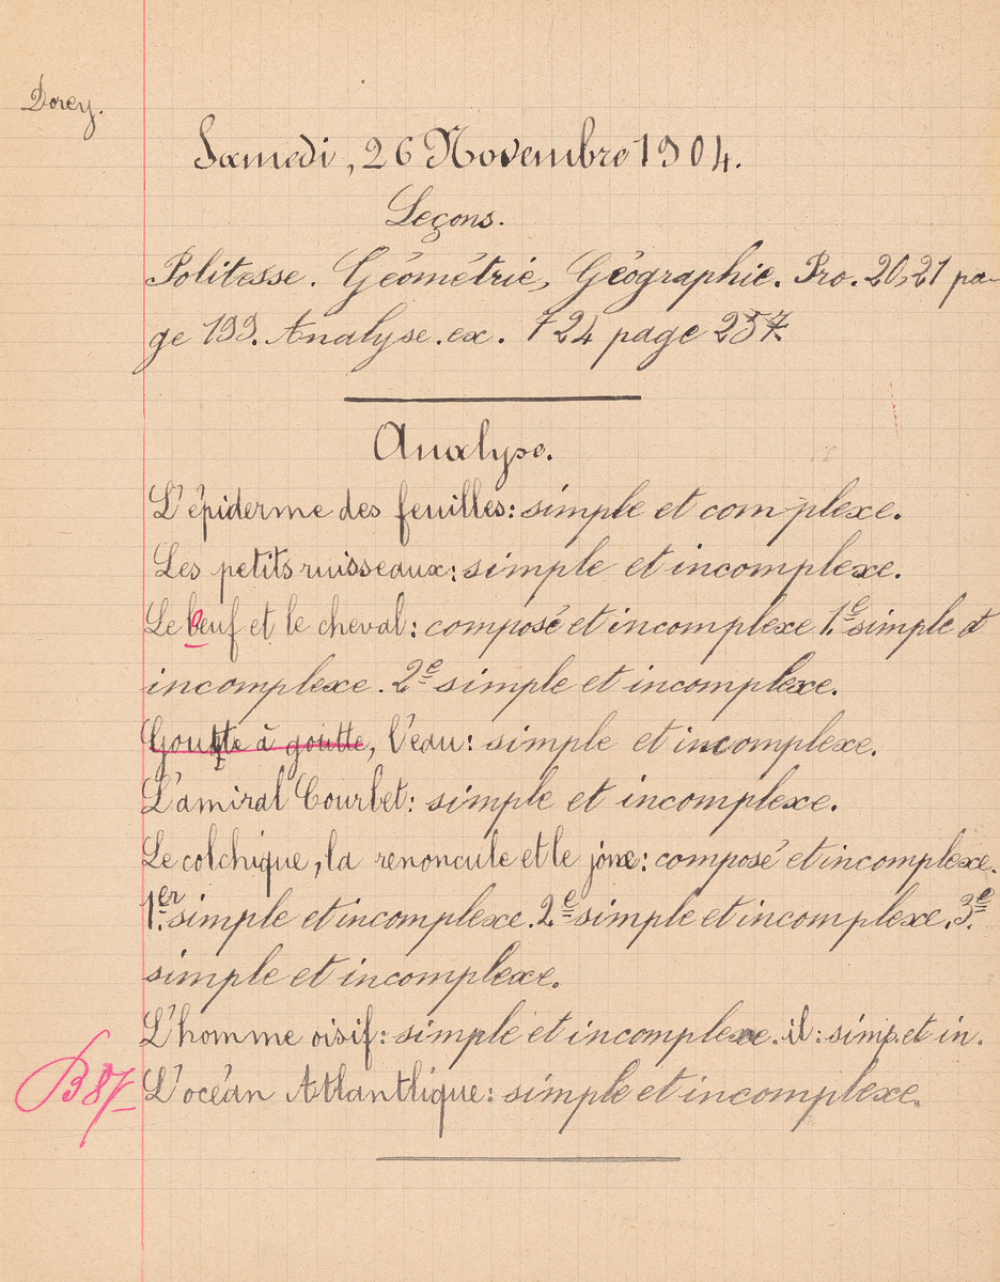 Dorey.
Samedi, 26 Novembre 1904.
Leçons.
Politesse. Géométrie, Géographie. Pro. 20, 21 pa-
ge 199. Analyse. ex. 724 page 257
Analyse.
L'épiderme des feuilles: simple et complexe.
Les petits ruisseaux: simple et incomplexe.
Le bœuf et le cheval: composé et incomplexe 1.e simple et
incomplexe. 2e simple et incomplexe.
Goutte à goutte, l'eau: simple et incomplexe.
L'amiral Courbet: simple et incomplexe.
Le colchique, la renoncule et le jonc: composé et incomplexe.
1er simple et incomplexe. 2e simple et incomplexe. 3e
simple et incomplexe.
L'homme oisif: simple et incomplexe. il: simp. et in.
B 87 L'océan Atlantique: simple et incomplexe.